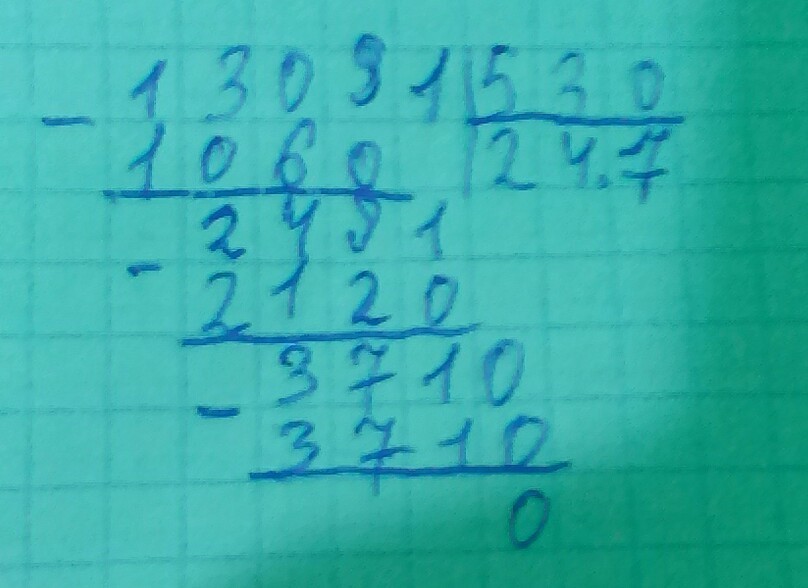 - 13091 | 530
1060 | 24.7
2491
- 2120
3710
- 3710
0